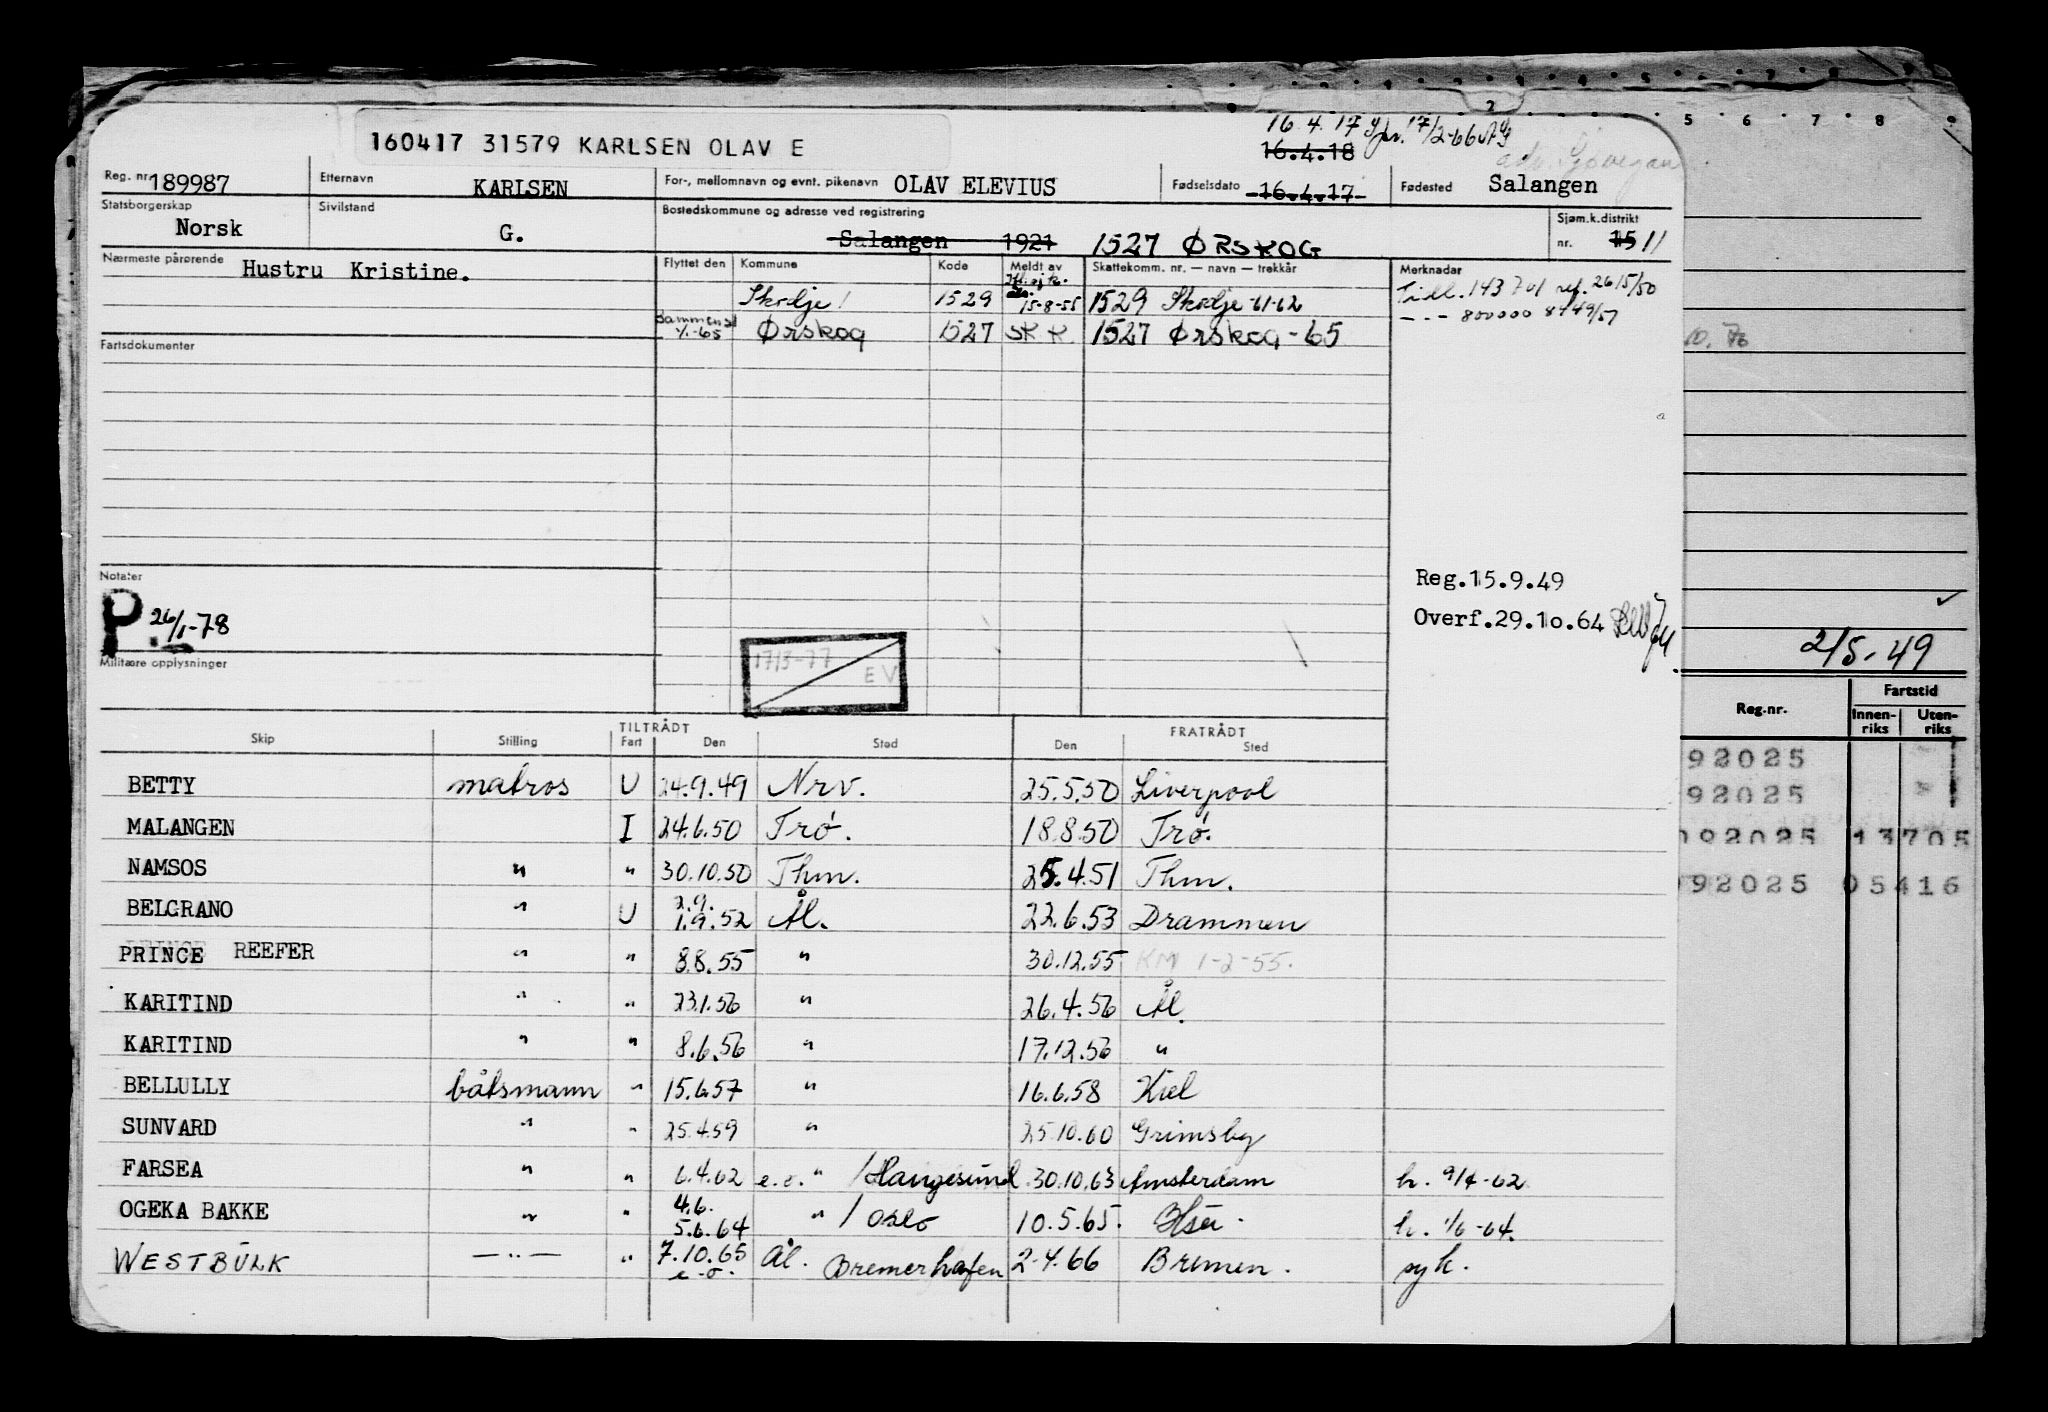 160417 31579 KARLSEN OLAV E
16.4.17 17/2-66
16.4.18
Reg. nr. 189987 Etternavn KARLSEN For-, mellomnavn og evnt. pikenavn OLAV ELEVIUS Fødselsdato 16.4.17 Fødested Salangen
Statsborgerskap Norsk Sivilstand G. Bostedskommune og adresse ved registrering Salangen 1921 1527 ØRSKOG Sjøm.k.distrikt nr. 15 11
Nærmeste pårørende Hustru Kristine. Flyttet den Kommune Kode Meldt av Skattekomm. nr. — navn — trekkår Merknader
Skodje 1529 15-8-55 1529 Skodje -61-62 Till. 143701 ref. 26/5/50
Sammensl 1/1-65 Ørskog 1527 SK.K. 1527 Ørskog - 65 - - - 800000
Fartsdokumenter
10. 76
Reg.15.9.49
Notater
P 26/1-78
Overf.29.10.64
2/5-49
17/3-77 EV
Militære opplysninger
Reg.nr. Fartstid
Innen-riks Uten-riks
TILTRÅDT FRATRÅDT
Skip Stilling Fart Den Sted Den Sted
BETTY matros U 24.9.49 Nrv. 25.5.50 Liverpool
MALANGEN I 24.6.50 Trø. 18.8.50 Trø.
NAMSOS " " 30.10.50 Thm. 25.4.51 Thm.
BELGRANO " U 2.9. 1.9.52 Ål. 22.6.53 Drammen
PRINCE REEFER " " 8.8.55 " 30.12.55 KM 1-2-55.
KARITIND " " 23.1.56 " 26.4.56 Ål.
KARITIND " " 8.6.56 " 17.12.56 "
BELLULLY båtsmann " 15.6.57 " 16.6.58 Kiel
SUNVARD " " 25.4.59 " 25.10.60 Grimsby
FARSEA " " 6.4.62 e.o. " / Haugesund 30.10.63 Amsterdam h. 9/4-62
OGEKA BAKKE " " 4.6. 5.6.64 " / Oslo 10.5.65. h. 1/6-64.
WESTBULK — " — " 7.10.65 e-o. Ål. Bremerhafen 2.4.66 Bremen. syk.
92025
92025
092025 13705
092025 05416